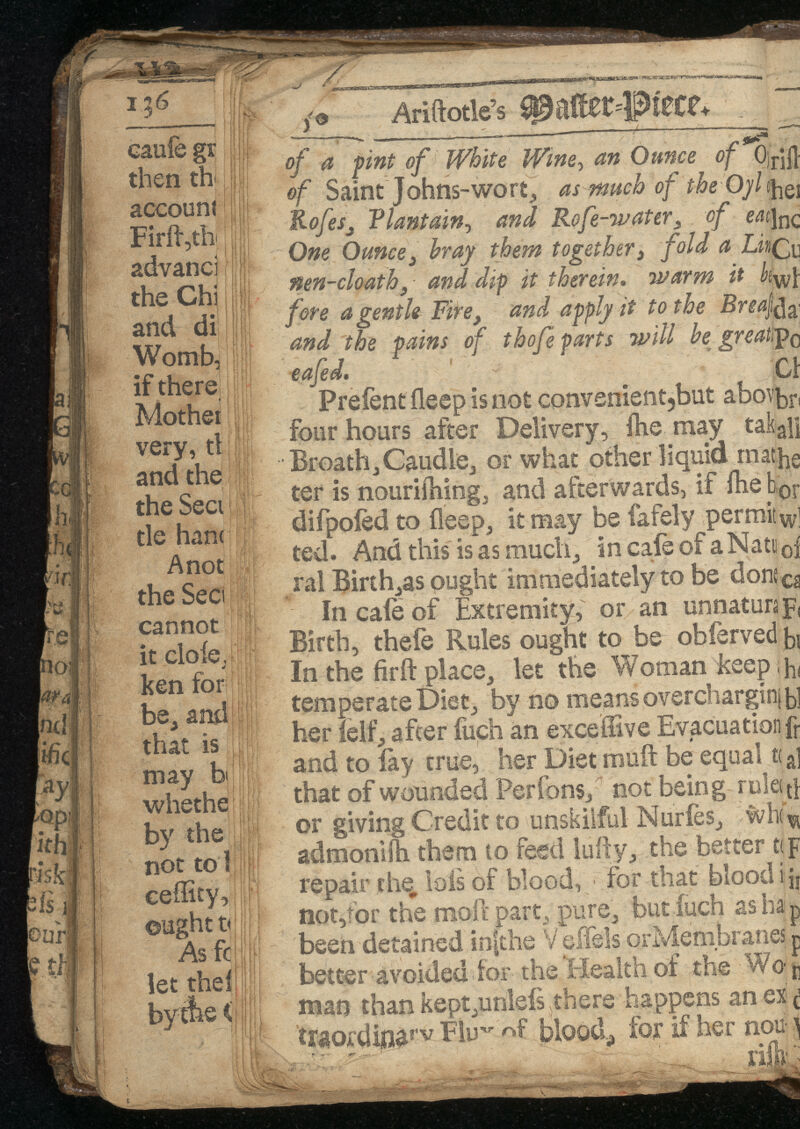 136
cauſe gr
then th
account
Firſt,th
advanci
the Chi
and di
Womb,
if there
Mother
very, tl
and the
the Seco
tle hand
Anot
the Seco
cannot
it cloſe,
ken for
be, and
that is
may b
whethe
by the
not to l
ceſſity,
ought t
As fo
let theſ
by the
Ariſtotle's Maſter-Piece.
of a pint of White Wine, an Ounce of
of Saint Johns-wort, as much of the Oyl
Roſes, Plantain, and Roſe-water, of ea
One Ounce, bray them together, fold a Lin
nen-cloath, and dip it therein. warm it be
fore a gentle Fire, and apply it to the Breaſ
and the pains of thoſe parts will be great
eaſed.
Preſent ſleep is not convenient,but abov
four hours after Delivery, ſhe may tak
Broath,Caudle, or what other liquid mat
ter is nouriſhing, and afterwards, if ſhe b
diſpoſed to ſleep, it may be ſafely permit
ted. And this is as much, in caſe of a Natu
ral Birth,as ought immediately to be done
In caſe of Extremity, or an unnatura
Birth, theſe Rules ought to be obſerved
In the firſt place, let the Woman keep
temperate Diet, by no means overchargin
her ſelf, after ſuch an exceſſive Evacuation
and to ſay true, her Diet muſt be equal t
that of wounded Perſons, not being rule
or giving Credit to unskilful Nurſes, wh
admoniſh them to feed luſty, the better t
repair the loſs of blood, for that blood i
not,for the moſt part, pure, but ſuch as ha
been detained in the Veſſels or Membranes
better avoided for the Health of the Wo
man than kept,unleſs there happens an ex
traordinary Flux of blood, for if her nou
riſh